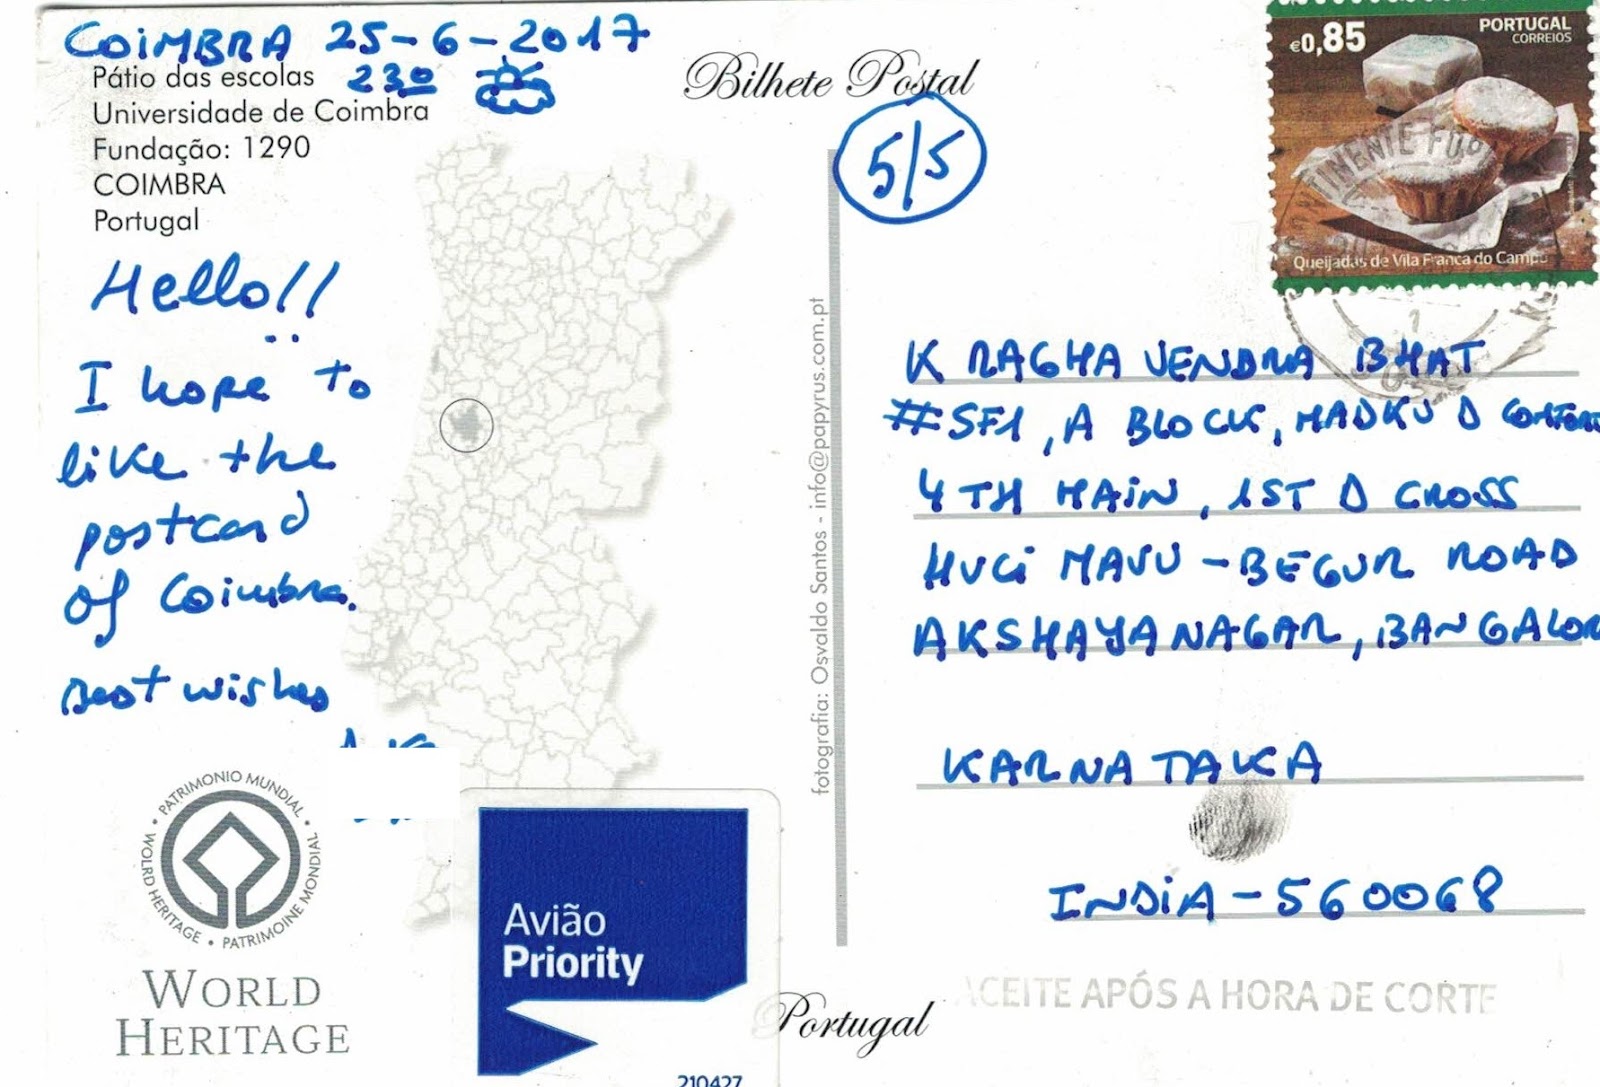 COIMBRA 25-6-2017
23º
Pátio das escolas
Universidade de Coimbra
Fundação: 1290
COIMBRA
Portugal
Hello!!
I hope to
like the
postcard
of Coimbra.
Best wishes
PATRIMONIO MUNDIAL • WOLRD HERITAGE • PATRIMOINE MONDIAL •
WORLD
HERITAGE
Avião
Priority
210427
Bilhete Postal
5/5
fotografia: Osvaldo Santos - info@papyrus.com.pt
Portugal
€0,85
PORTUGAL
CORREIOS
Queijadas de Vila Franca do Campo
K RAGHAVENDRA BHAT
#SF1, A BLOCK, MADKU D COMFORT
4TH MAIN, 1ST D CROSS
HUCI MAVU - BEGUR ROAD
AKSHAYANAGAR, BANGALOR
KARNATAKA
INDIA - 560068
ACEITE APÓS A HORA DE CORTE